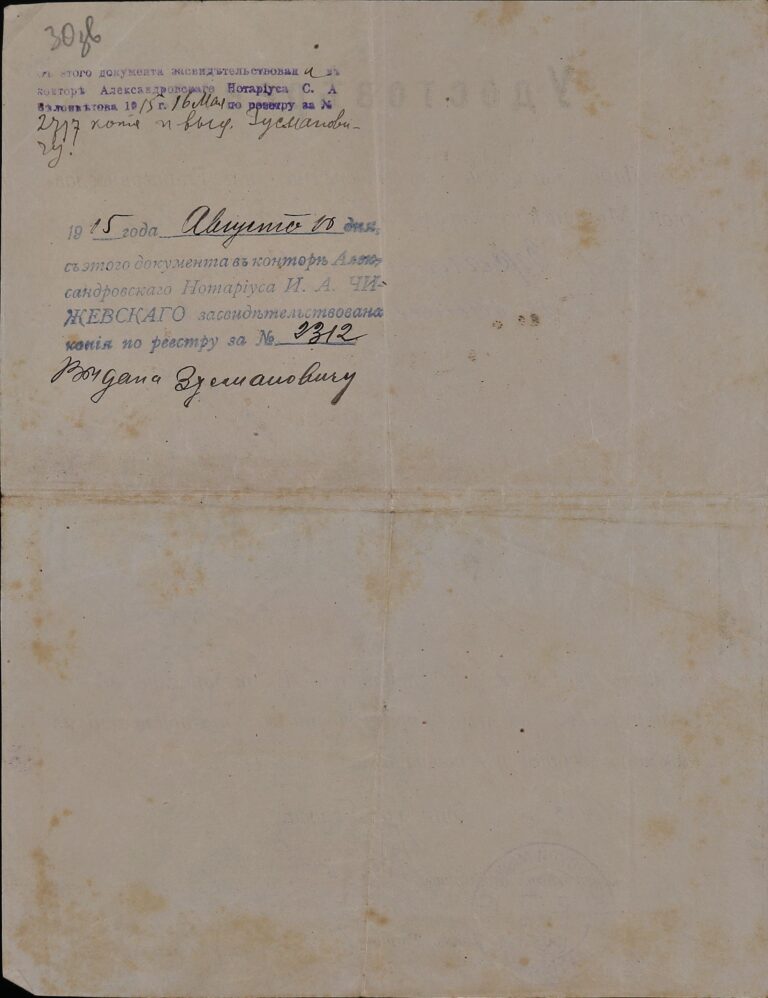 30 об
Съ этого документа засвидѣтельствована въ
конторѣ Александровскаго Нотаріуса С. А
1915 г. 16 Мая по реестру за №
2717 копія и выд. Зусманови-
чу.
1915 года Августа 10 дня,
съ этого документа въ конторѣ Алек-
сандровскаго Нотаріуса И. А. ЧИ-
ЖЕВСКАГО засвидѣтельствована
копія по реестру за № 2312
Выдана Зусмановичу